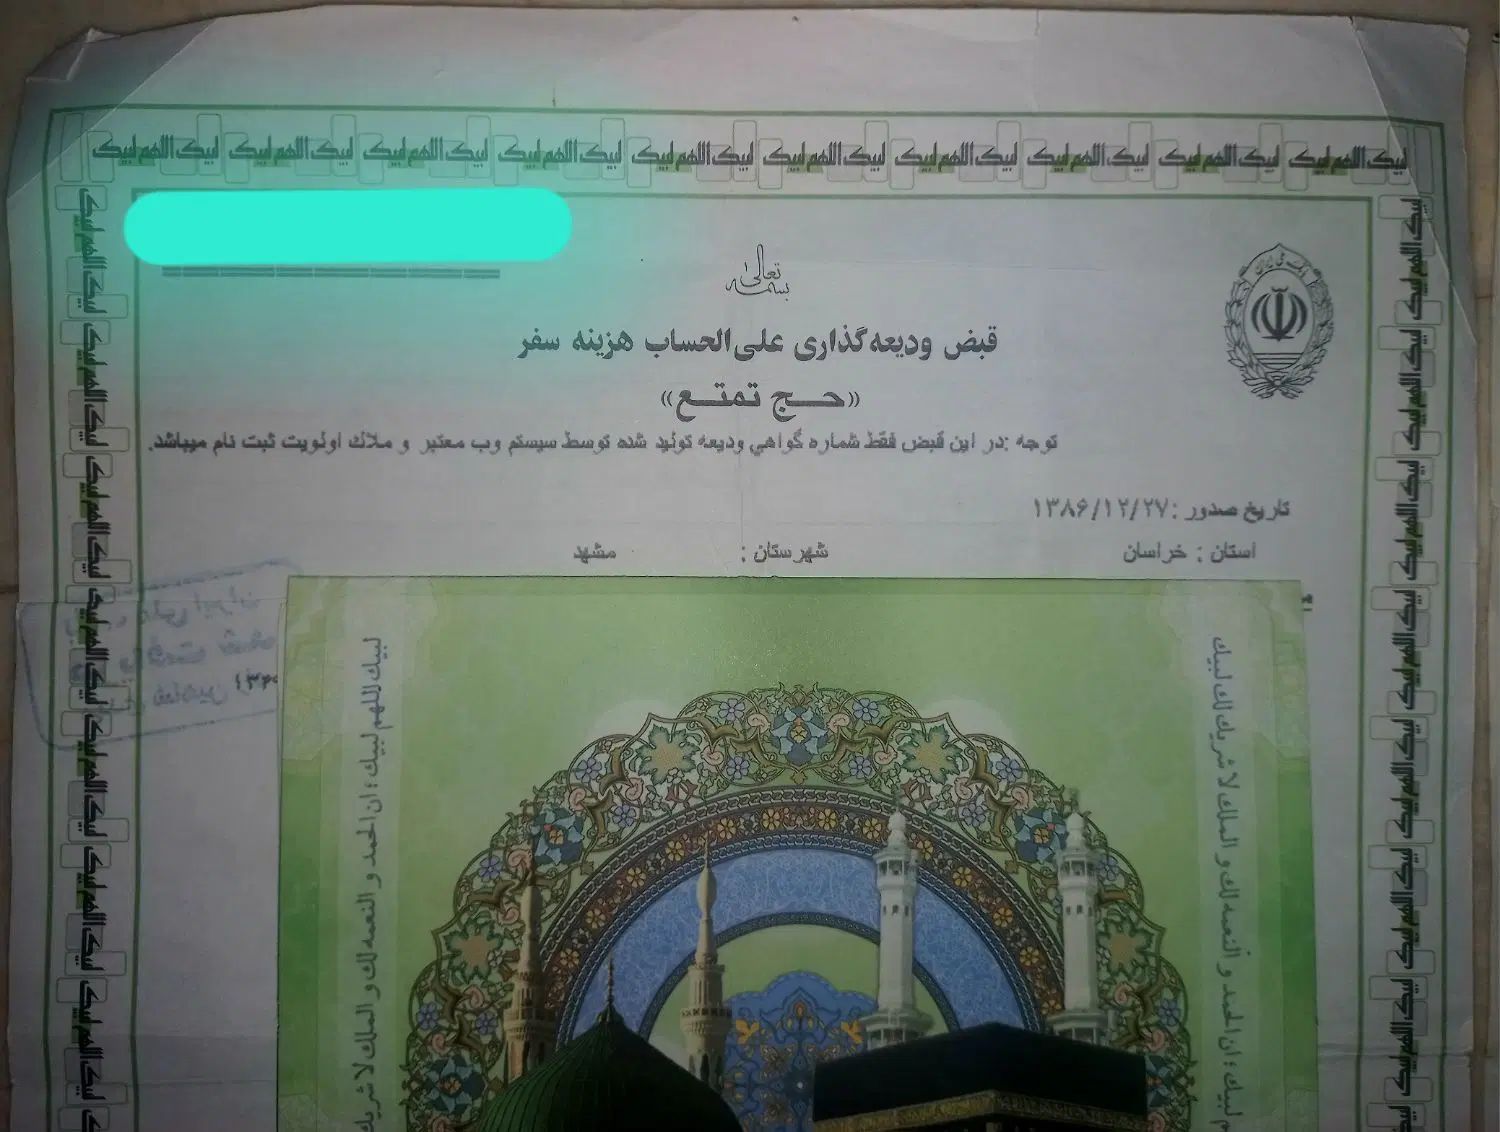 لبیک اللهم لبیک لبیک اللهم لبیک لبیک اللهم لبیک لبیک اللهم لبیک لبیک اللهم لبیک لبیک اللهم لبیک لبیک اللهم لبیک لبیک اللهم لبیک لبیک اللهم لبیک لبیک اللهم لبیک
بسمه تعالی
بانک ملی ایران
قبض ودیعه‌گذاری علی‌الحساب هزینه سفر
«حج تمتع»
توجه :در این قبض فقط شماره گواهي ودیعه تولید شده توسط سیستم وب معتبر و ملاك اولویت ثبت نام میباشد.
تاریخ صدور :۱۳۸۶/۱۲/۲۷
استان : خراسان شهرستان : مشهد
لبيك اللهم لبيك ، ان الحمد و النعمه لك و الملك لا شريك
م لبيك ، ان الحمد و النعمه لك و الملك لا شريك لك لبيك